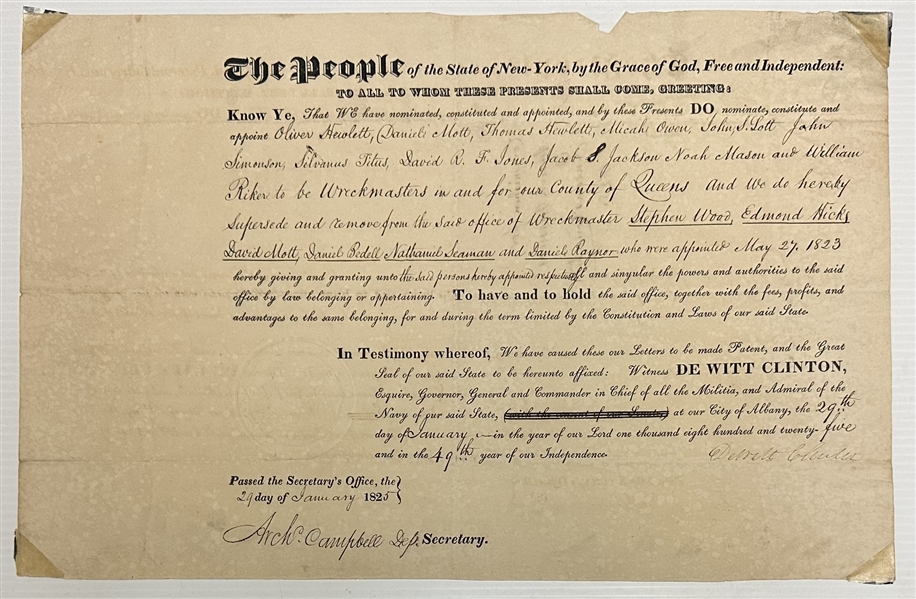 The People of the State of New-York, by the Grace of God, Free and Independent:
TO ALL TO WHOM THESE PRESENTS SHALL COME, GREETING:
Know Ye, That WE have nominated, constituted and appointed, and by these Presents DO nominate, constitute and
appoint Oliver Hewlett, Daniel Mott, Thomas Hewlett, Micah Owen, John S. Lott John
Simonson, Silvanus Titus, David R. F. Jones, Jacob S. Jackson Noah Mason and William
Riker to be Wreckmasters in and for our County of Queens and We do hereby
Supersede and remove from the said office of Wreckmaster Stephen Wood, Edmond Hicks
David Mott, Daniel Bedell Nathaniel Seaman and Daniel Raynor who were appointed May 27, 1823
hereby giving and granting unto the said persons hereby appointed all and singular the powers and authorities to the said
office by law belonging or appertaining. To have and to hold the said office, together with the fees, profits, and
advantages to the same belonging, for and during the term limited by the Constitution and Laws of our said State.
In Testimony whereof, We have caused these our Letters to be made Patent, and the Great
Seal of our said State to be hereunto affixed: Witness DE WITT CLINTON,
Esquire, Governor, General and Commander in Chief of all the Militia, and Admiral of the
Navy of our said State, (with the consent of our Senate,) at our City of Albany, the 29th
day of January in the year of our Lord one thousand eight hundred and twenty-five
and in the 49th year of our Independence. DeWitt Clinton
Passed the Secretary's Office, the
29 day of January 1825
Archd. Campbell Dep. Secretary.